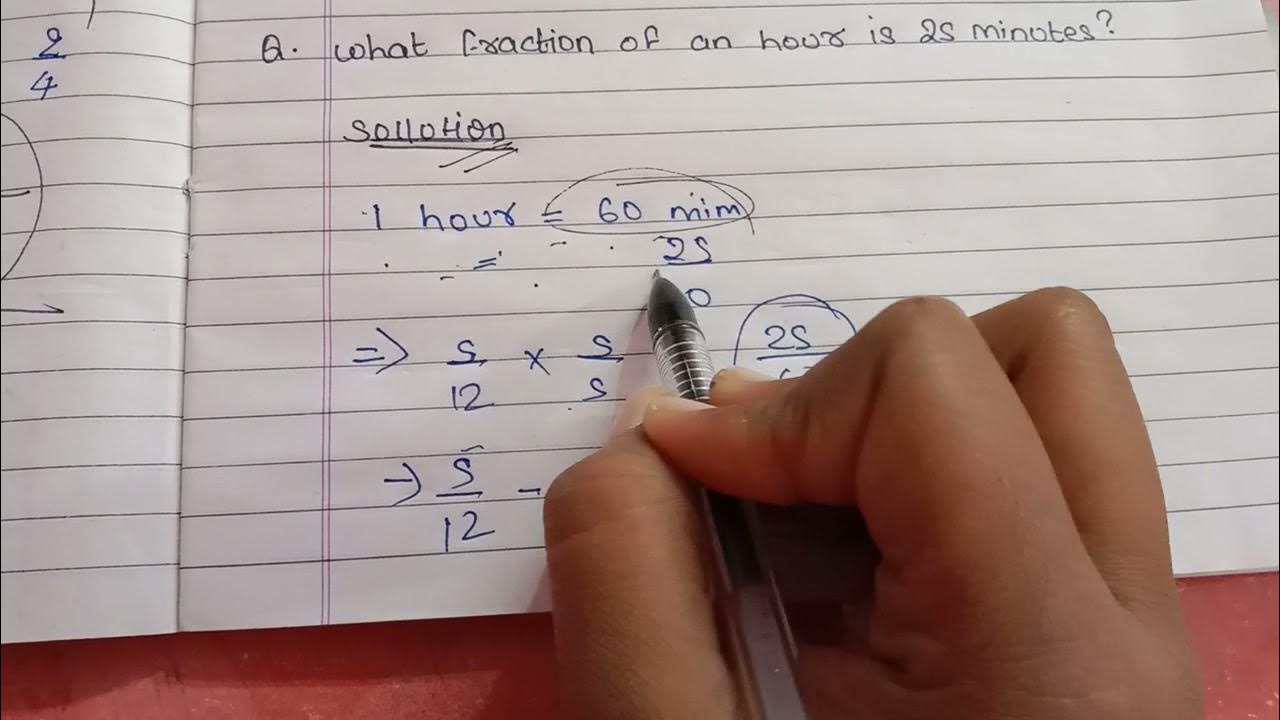 2
4
Q. What fraction of an hour is 25 minutes?
Sollotion
1 hour = 60 mim
=
25
0
=> 5/12 × 5/5
25
-> 5/12 -